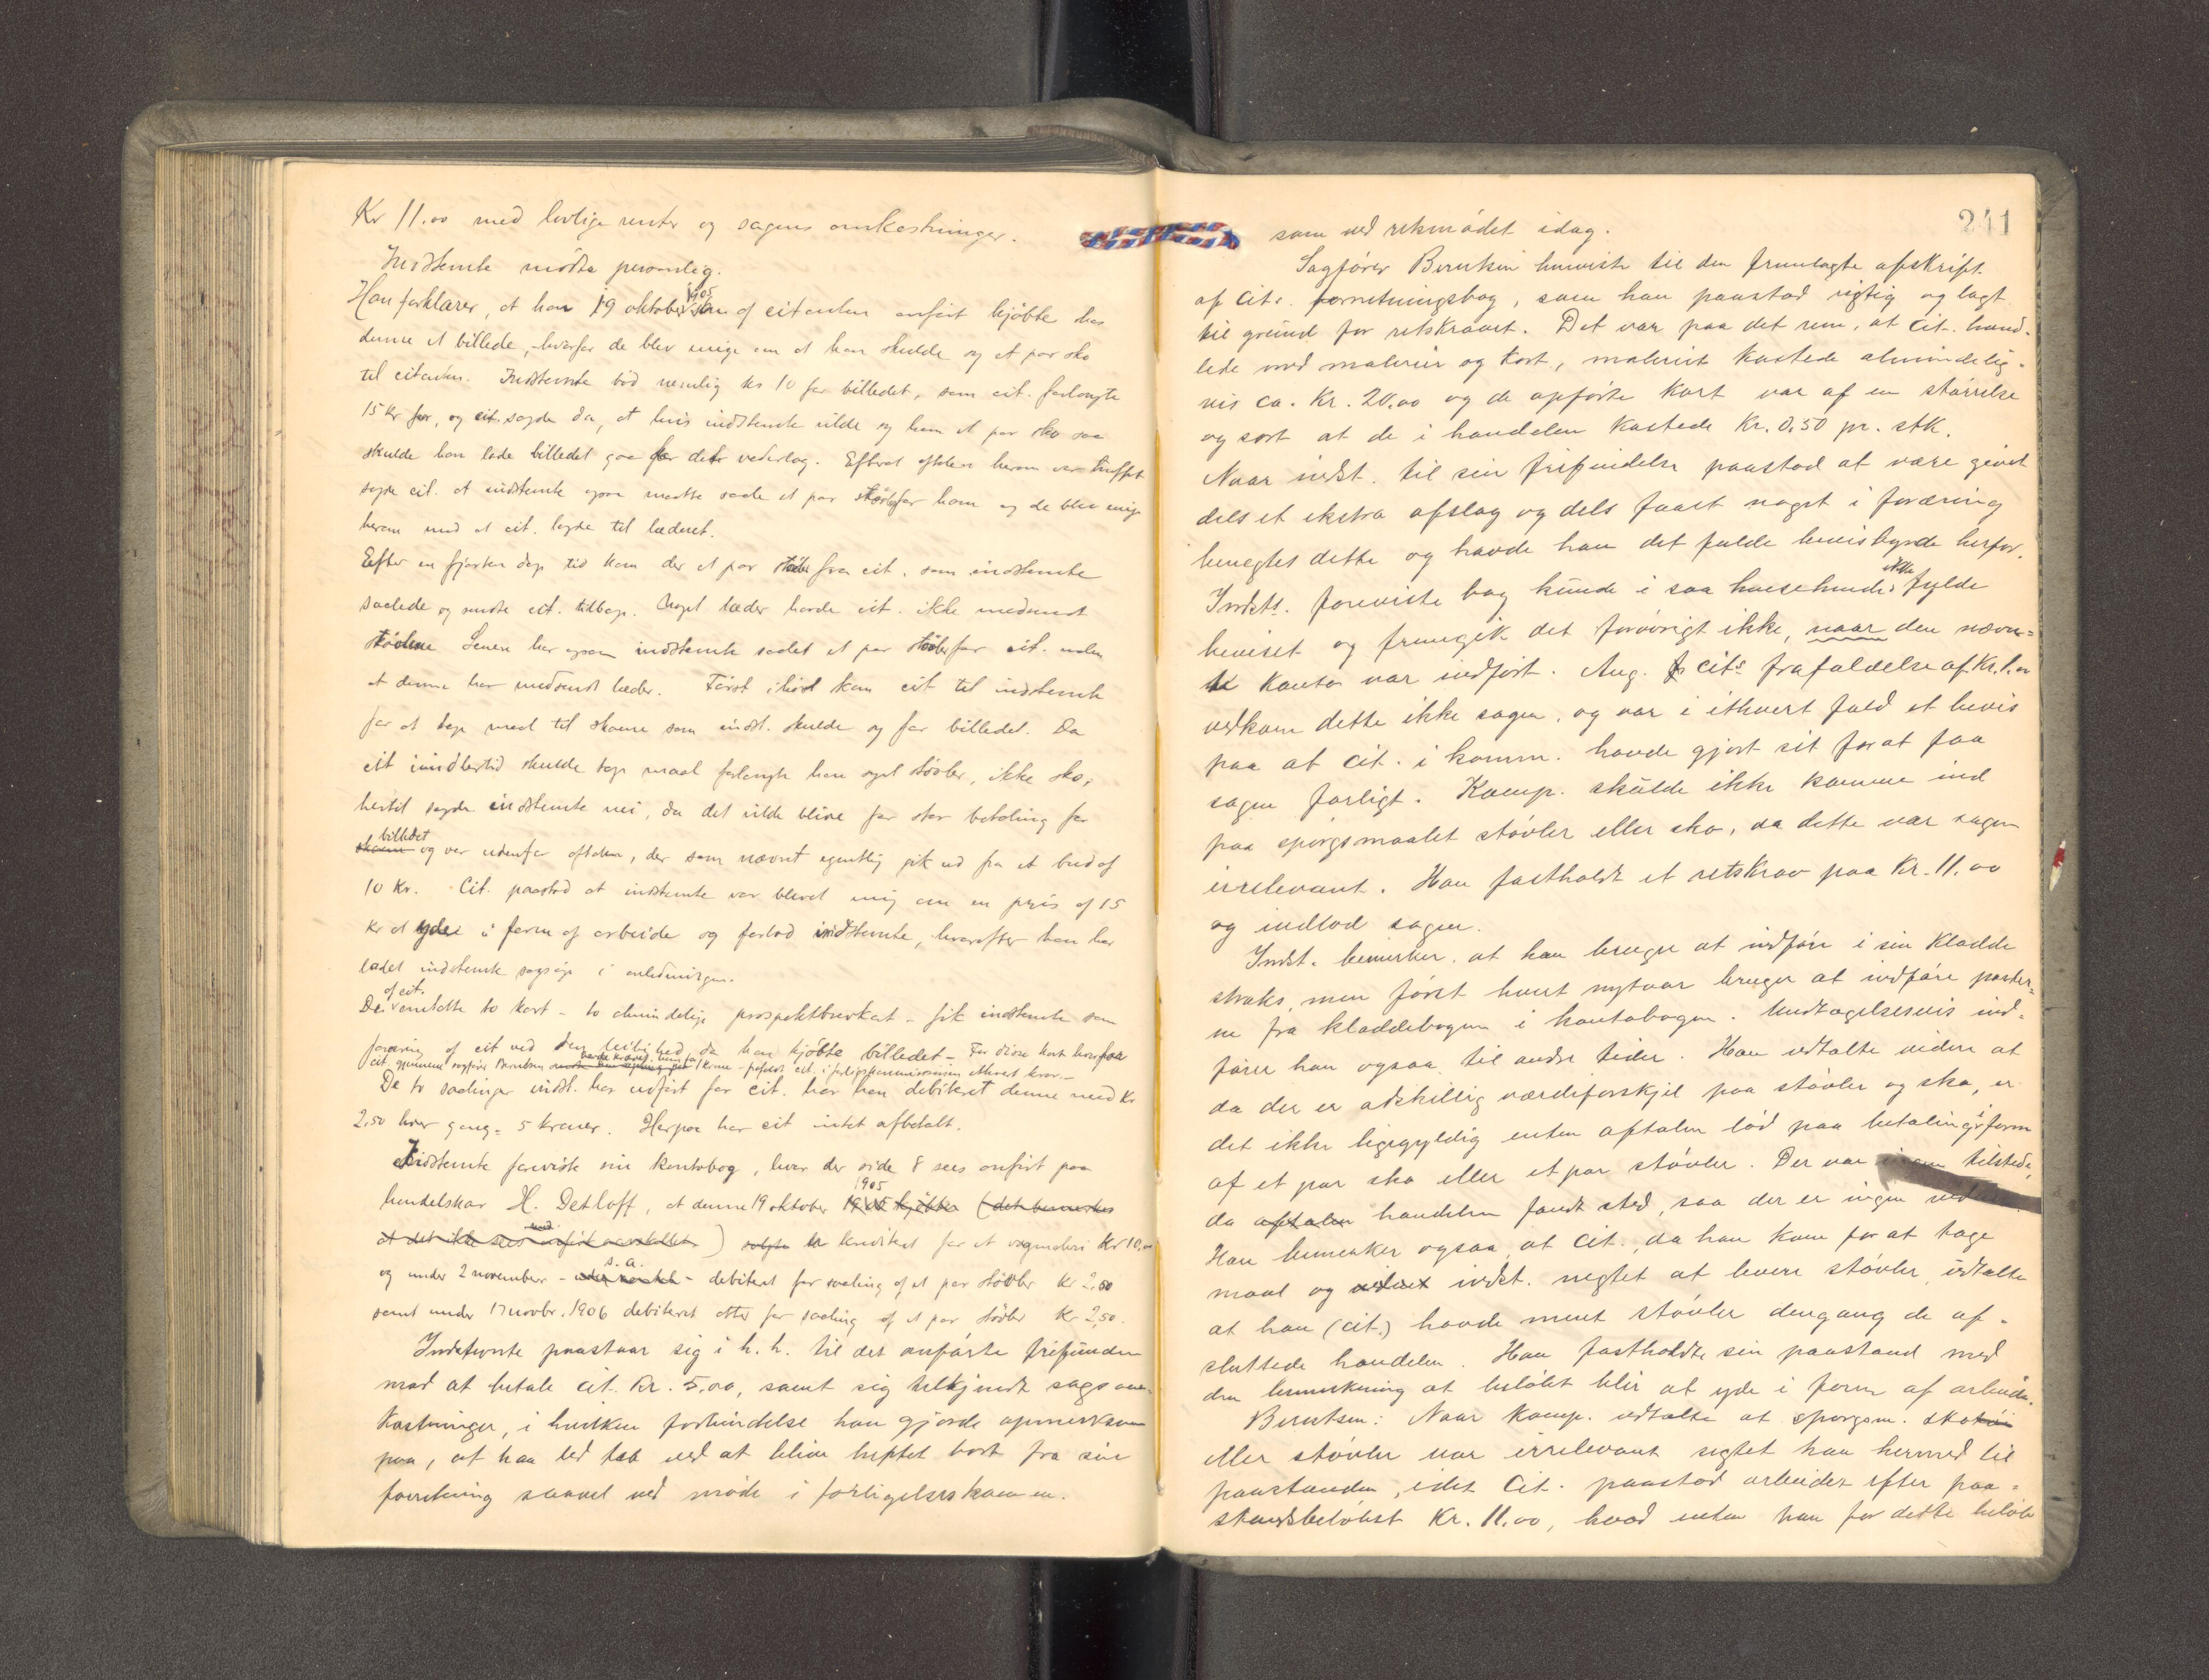 Kr 11.00 med lovlige renter og sagens omkostninger.
Indstevnte mødte personlig.
Han forklarer, at han 19 oktober 1905 som af citanten anført kjøbte hos
denne et billede, hvorfor de blev enige om at han skulde sy et par sko
til citanten. Indstevnte bød nemlig kr 10 for billedet, som cit. forlangte
15 kr for, og cit. sagde da, at hvis indstevnte vilde sy ham et par sko saa
skulde han lade billedet gaa for dette vederlag. Efterat aftalen herom var truffet
sagde cit. at indstevnte ogsaa maatte saale et par støvler for ham og de blev enige
herom med at cit. lagde til læderet.
Efter en fjorten dags tid kom der et par støvler fra cit. som indstevnte
saalede og sendte cit. tilbage. Noget læder havde cit. ikke medsendt
støvlene. Senere har ogsaa indstevnte saalet et par støvler for cit. uden
at denne har medsendt læder. Først i høst kom cit til indstevnte
for at tage maal til skoene som indst. skulde sy for billedet. Da
cit imidlertid skulde tage maal forlangte han syet støvler, ikke sko;
hertil sagde indstevnte nei, da det vilde blive for stor betaling for
billedet
skoene og var udenfor aftalen, der som nævnt egentlig gik ud fra et bud af
10 Kr. Cit. paastod at indstevnte var blevet enig om en pris af 15
kr at yde i form af arbeide og forlod indstevnte, hvorefter han har
ladet indstevnte sagsøge i anledningen.
af cit.
De omtalte to kort - to almindelige prospektbrevkort - fik indstevnte som
foræring af cit ved den leilighed da han kjøbte billedet - For disse kort hvorfor
cit gjennem sagfører Berntsen havde krævet ham for 1 krone - frafaldt cit. i forligskommissionen ethvert krav.-
De to saalinger indst. har udført for cit. har han debiteret denne med Kr
2,50 hver gang = 5 kroner. Herpaa har cit intet afbetalt.
Indstevnte foreviste sin kontobog, hvor der side 8 sees anført paa
1905
handelskar H. Detloff, at denne 19 oktober 1905 kjøbte (det bemerkes
at det ikke sees anført med aarstallet) solgte er krediteret for et vægmaleri Kr 10,00
s. a.
og under 2 november - debiteret for saaling af et par støvler Kr 2.50
samt under 17 novbr. 1906 debiteret atter for saaling af et par støvler Kr 2,50.
Indstevnte paastaar sig i h. h. til det anførte frifunden
mod at betale cit. Kr. 5.00, samt sig tilkjendt sagsom-
kostninger, i hvilken forbindelse han gjorde opmerksom
paa, at han led tab ved at blive heftet bort fra sin
forretning saavel ved møde i forligelseskommen.
241
som ved retsmødet idag.
Sagfører Berntsen henviste til den fremlagte afskrift
af Cit.s forretningsbog, som han paastod rigtig og lagt
til grund for retskravet. Det var paa det rene, at Cit. hand-
lede med malerier og kort, maleriet kostede almindelig-
vis ca. Kr. 20.00 og de opførte kort var af en størrelse
og sort at de i handelen kostede Kr. 0.50 pr. stk.
Naar indst. til sin frifindelse paastod at være givet
dels et ekstra afslag og dels faaet noget i foræring
benegtes dette og havde han det fulde bevisbyrde herfor.
ikke
Indsts. foreviste bog kunde i saa henseende fylde
beviset og fremgik det forøvrigt ikke, naar den nævn-
te Konto var indført. Ang. cits frafaldelse af Kr. 1.00
vedkom dette ikke sagen, og var i ethvert fald et bevis
paa at cit. i komm. havde gjort sit for at faa
sagen forligt. Komp. skulde ikke komme ind
paa spørgsmaalet støvler eller sko, da dette var sagen
irrelevant. Han fastholdt et retskrav paa Kr. 11.00
og indlod sagen.
Indst. bemerker, at han bruger at indføre i sin Kladde
straks, men først hvert nytaar bruger at indføre poster-
ne fra kladdebogen i kontobogen. Undtagelsesvis ind-
fører han ogsaa til andre tider. Han udtalte videre at
da der er adskillig værdiforskjel paa støvler og sko, er
det ikke ligegyldig enten aftalen lød paa betaling i form
af et par sko eller et par støvler. Der var ingen tilstede,
da aftalen handelen fandt sted, saa der er ingen
Han bemerker ogsaa at Cit., da han kom for at tage
maal og indst. negtet at levere støvler, udtalte
at han (cit.) havde ment støvler dengang de af-
sluttede handelen. Han fastholdte sin paastand med
den bemerkning at beløbet blir at yde i form af arbeide.
Berntsen: Naar Komp. udtalte at spørgsm. sko
eller støvler var irrelevant sigtet han hermed til
paastanden, idet Cit. paastod arbeidet efter paa-
standsbeløbet Kr. 11.00, hvad enten han for dette beløb